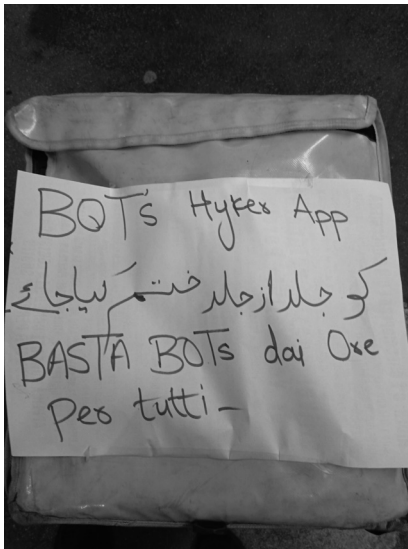 BOT's Hyker App
کو جلد از جلد ختم کیا جائے
BASTA BOTs dai Ore
Per tutti -